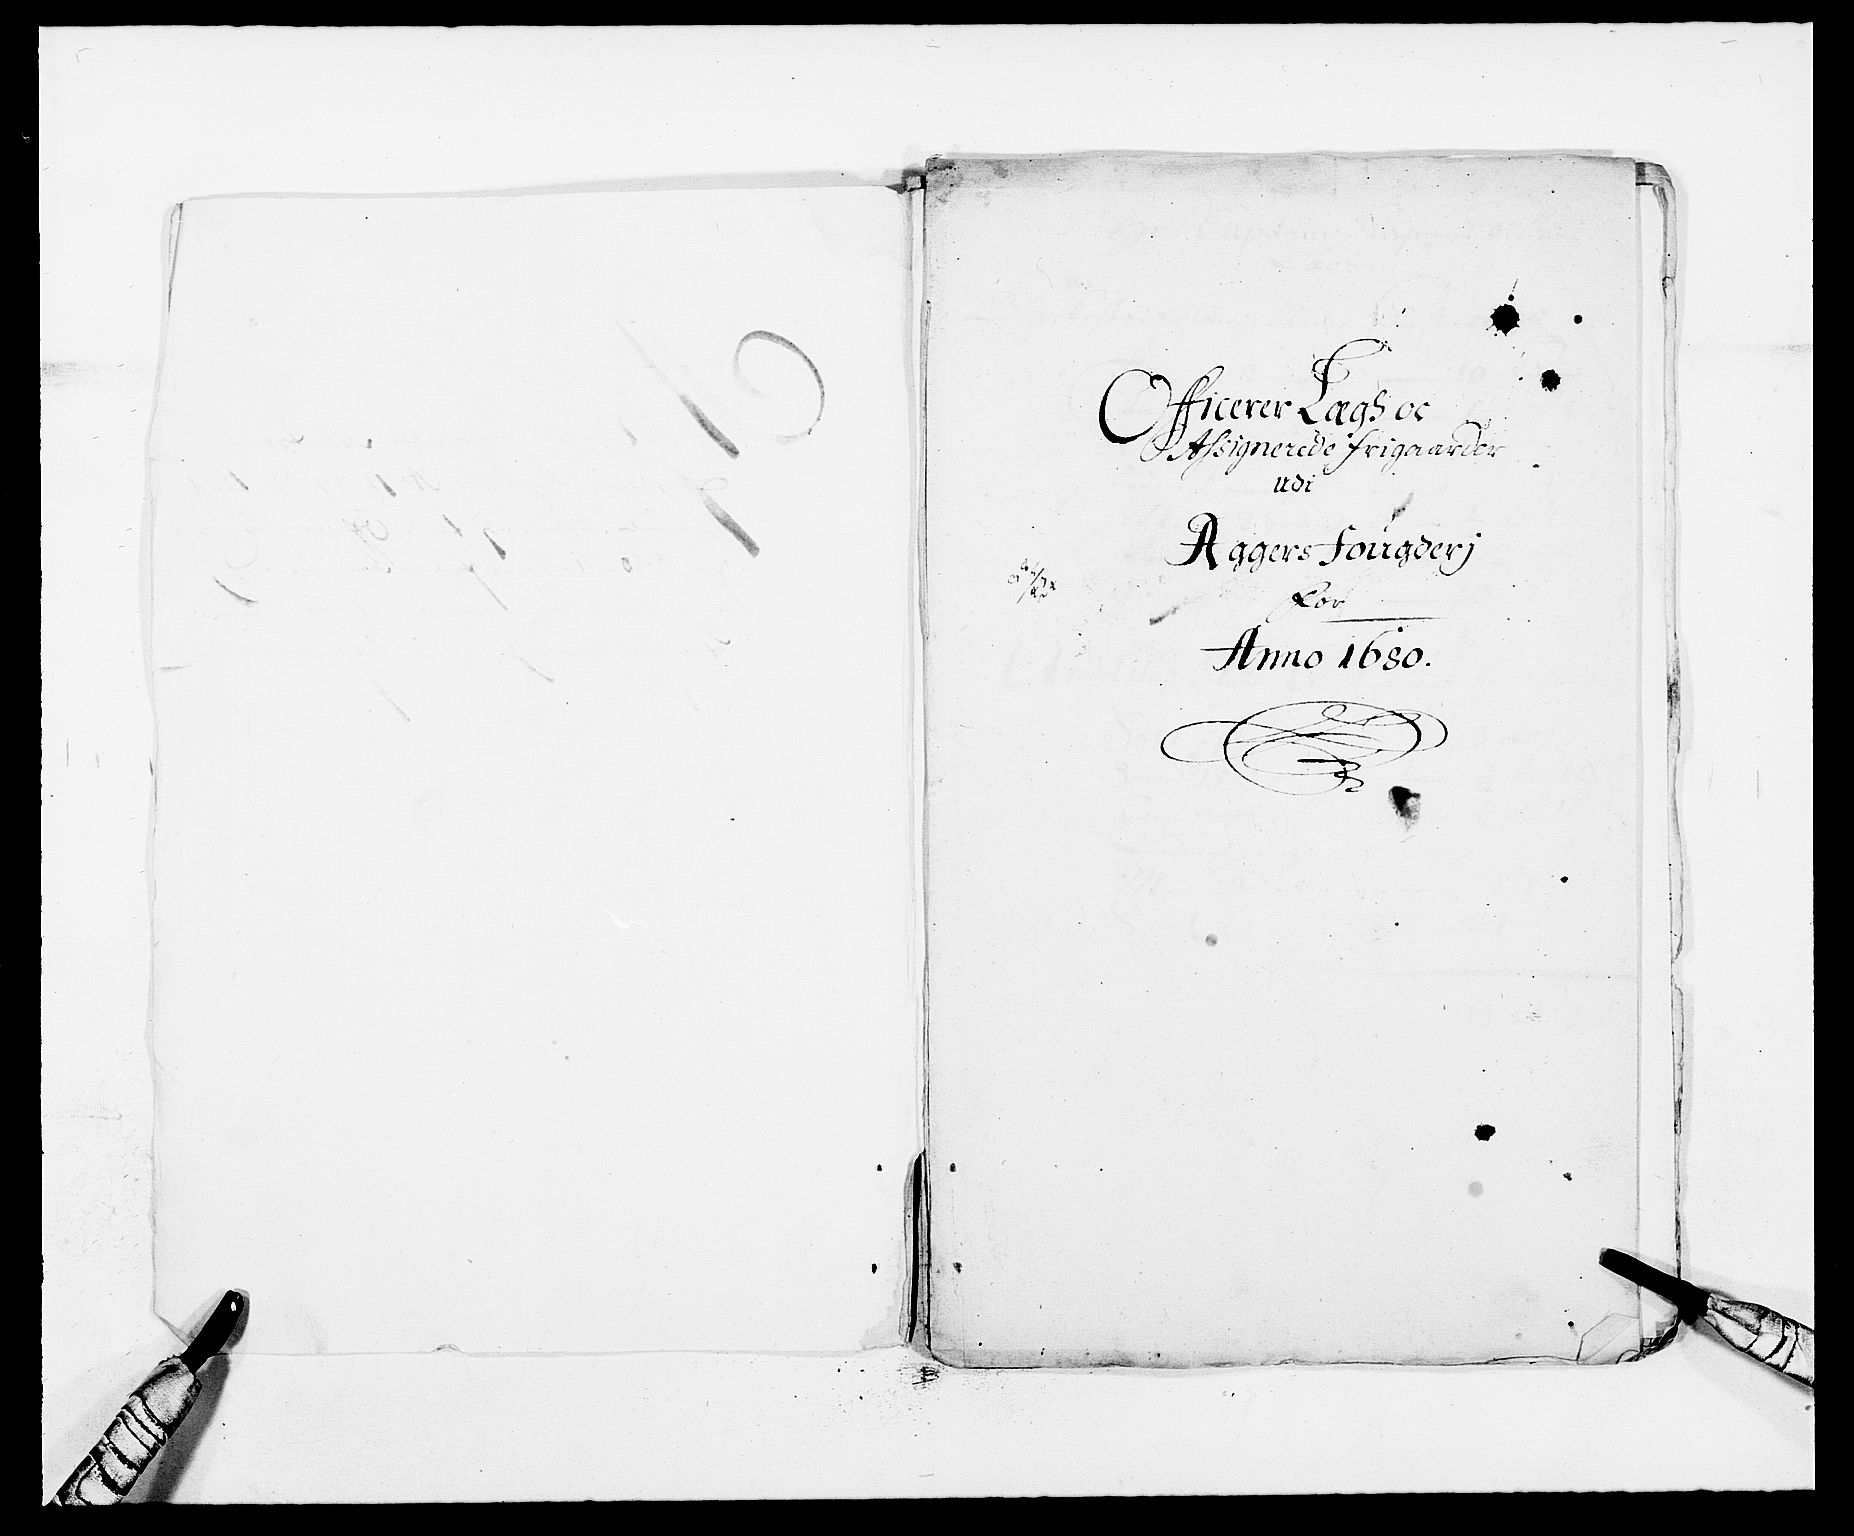 Officerer Lægs oc
Assignerede frigaarder
udi
Aggers Fougderj
For
Anno 1680.